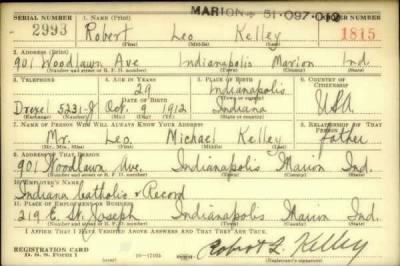 MARION 51-097-0
SERIAL NUMBER 1. NAME (Print) ORDER NUMBER
2993 Robert Leo Kelley 1815
(First) (Middle) (Last)
2. ADDRESS (Print)
901 Woodlawn Ave Indianapolis Marion Ind.
(Number and street or R. F. D. number) (Town) (County) (State)
3. TELEPHONE 4. AGE IN YEARS 5. PLACE OF BIRTH 6. COUNTRY OF CITIZENSHIP
29 Indianapolis
DATE OF BIRTH (Town or county)
Drexel 5231-J Oct. 9 1912 Indiana USA
(Exchange) (Number) (Mo.) (Day) (Yr.) (State or country)
7. NAME OF PERSON WHO WILL ALWAYS KNOW YOUR ADDRESS 8. RELATIONSHIP OF THAT PERSON
Mr. Leo Michael Kelley father
(Mr., Mrs., Miss) (First) (Middle) (Last)
9. ADDRESS OF THAT PERSON
901 Woodlawn Ave. Indianapolis Marion Ind.
(Number and street or R. F. D. number) (Town) (County) (State)
10. EMPLOYER'S NAME
Indiana Catholic & Record
11. PLACE OF EMPLOYMENT OR BUSINESS
219 E. St. Joseph Indianapolis Marion Ind.
(Number and street or R. F. D. number) (Town) (County) (State)
I AFFIRM THAT I HAVE VERIFIED ABOVE ANSWERS AND THAT THEY ARE TRUE.
REGISTRATION CARD
D. S. S. Form 1 16—17105 Robert L. Kelley